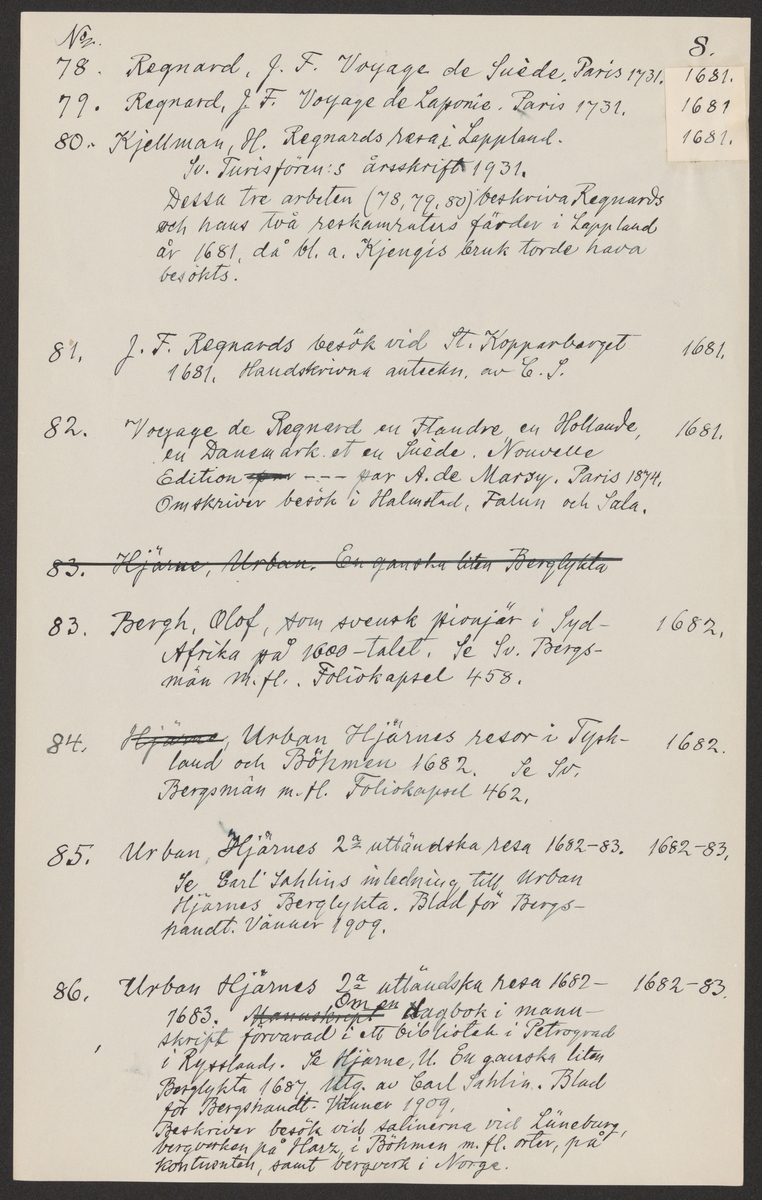 No.
8.
78. Regnard, J. F. Voyage de Suède. Paris 1731. 1681.
79. Regnard, J. F. Voyage de Laponie. Paris 1731. 1681
80. Kjellman, H. Regnards resa i Lappland. 1681.
Sv. Turistfören:s årsskrift 1931.
Dessa tre arbeten (78, 79, 80) beskriva Regnards
och hans två reskamraters färder i Lappland
år 1681, då bl. a. Kjengis bruk torde hava
besökts.
81. J. F. Regnards besök vid St. Kopparberget 1681.
1681. Handskrivna anteckn. av C. S.
82. Voyage de Regnard en Flandre, en Hollande, 1681.
en Danemark et en Suède. Nouvelle
Edition par --- par A. de Marsy. Paris 1874.
Omskriver besök i Halmstad, Falun och Sala.
83. Hjärne, Urban. En ganska liten Berglykta
83. Bergh, Olof, som svensk pionjär i Syd- 1682.
Afrika på 1600-talet. Se Sv. Bergs-
män m.fl. Foliokapsel 458.
84. Hjärne, Urban Hjärnes resor i Tysk- 1682.
land och Böhmen 1682. Se Sv.
Bergsmän m.fl. Foliokapsel 462.
85. Urban Hjärnes 2a utländska resa 1682-83. 1682-83.
Se Carl Sahlins inledning till Urban
Hjärnes Berglykta. Blad för Bergs-
handt. Vänner 1909.
86. Urban Hjärnes 2a utländska resa 1682- 1682-83.
1683. Manuskript Om en dagbok i manu-
skript förvarad i ett bibliotek i Petrograd
i Ryssland. Se Hjärne, U. En ganska liten
Berglykta 1687. Utg. av Carl Sahlin. Blad
för Bergshandt. Vänner 1909.
Beskriver besök vid salinerna vid Lüneburg,
bergverken på Harz, i Böhmen m.fl. orter, på
kontinenten, samt bergverk i Norge.